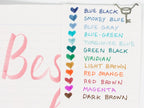 BLUE BLACK
SMOKEY BLUE
BLUE GRAY
BLUE-GREEN
TURQUOISE BLUE
GREEN BLACK
VIRIDIAN
LIGHT BROWN
RED ORANGE
RED BROWN
MAGENTA
DARK BROWN
Bes